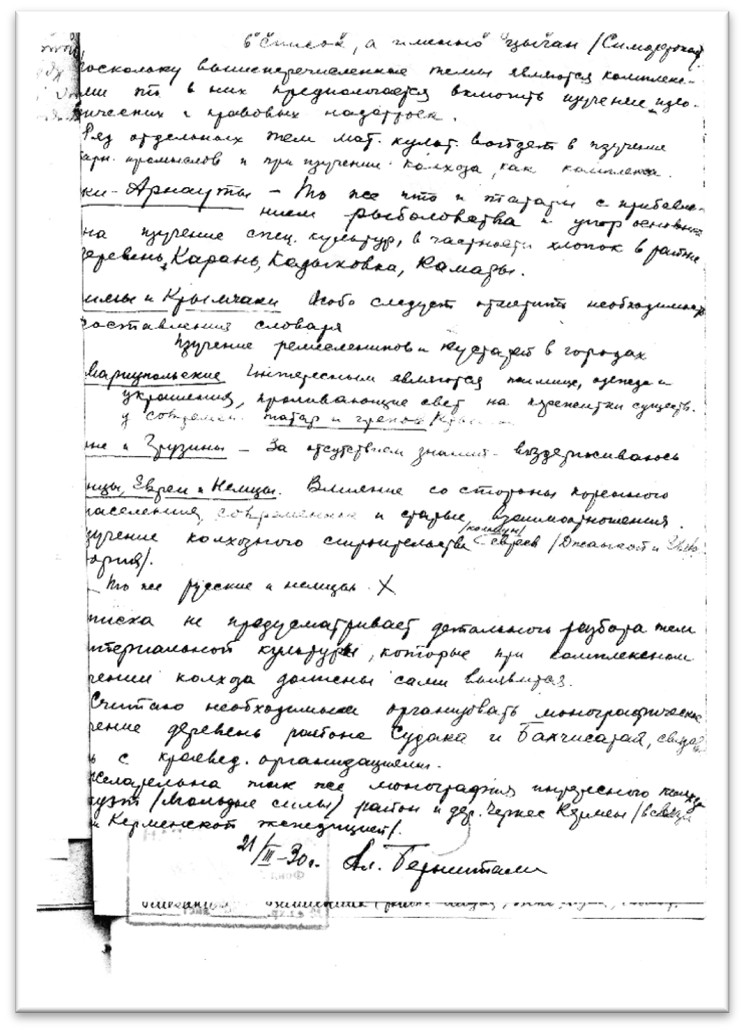 в "список", а именно цыган /Симферополь/
поскольку вышеперечисленные темы являются комплекс-
ми то в них предполагается включить изучение идео-
гических и правовых надстроек.
Ряд отдельных тем мат. культ. войдет в изучение
арн. промыслов и при изучении колхоза, как комплекса.
ки-Арнауты — То же что и татары с прибавле-
нием рыболовства и упор основной
на изучение спец. культур, в частности хлопок в районе
деревень, Карань, Кадыковка, Камары.
имы и Крымчаки Особо следует отметить необходимость
составления словаря
Изучение ремесленников и кустарей в городах
Мариупольские Интересным являются жилище, одежда и
украшения, проливающие свет на пережитки существ.
у современ. татар и греков Крыма
не и Грузины — За отсутствием знаний воздерживаюсь
нцы, Евреи и Немцы. Влияние со стороны коренного
населения, современные и старые взаимоотношения.
зучение колхозного строительства /коммун/ евреев /Джанкой и Евпа-
тория/.
— То же русские и немцы. X
писка не предусматривает детального разбора тем
атериальной культуры, которые при комплексном
чении колхоза должны сами выявиться.
Считаю необходимым организовать монографическое
чение деревень района Судака и Бахчисарая, связав
ь с краевед. организациями.
желательна так же монография интересного колхоза
/Молодые силы/ район и дер. Черкес Кермен /в связи
и Керменской экспедицией/.
21/III-30г. Ал. Бернштам